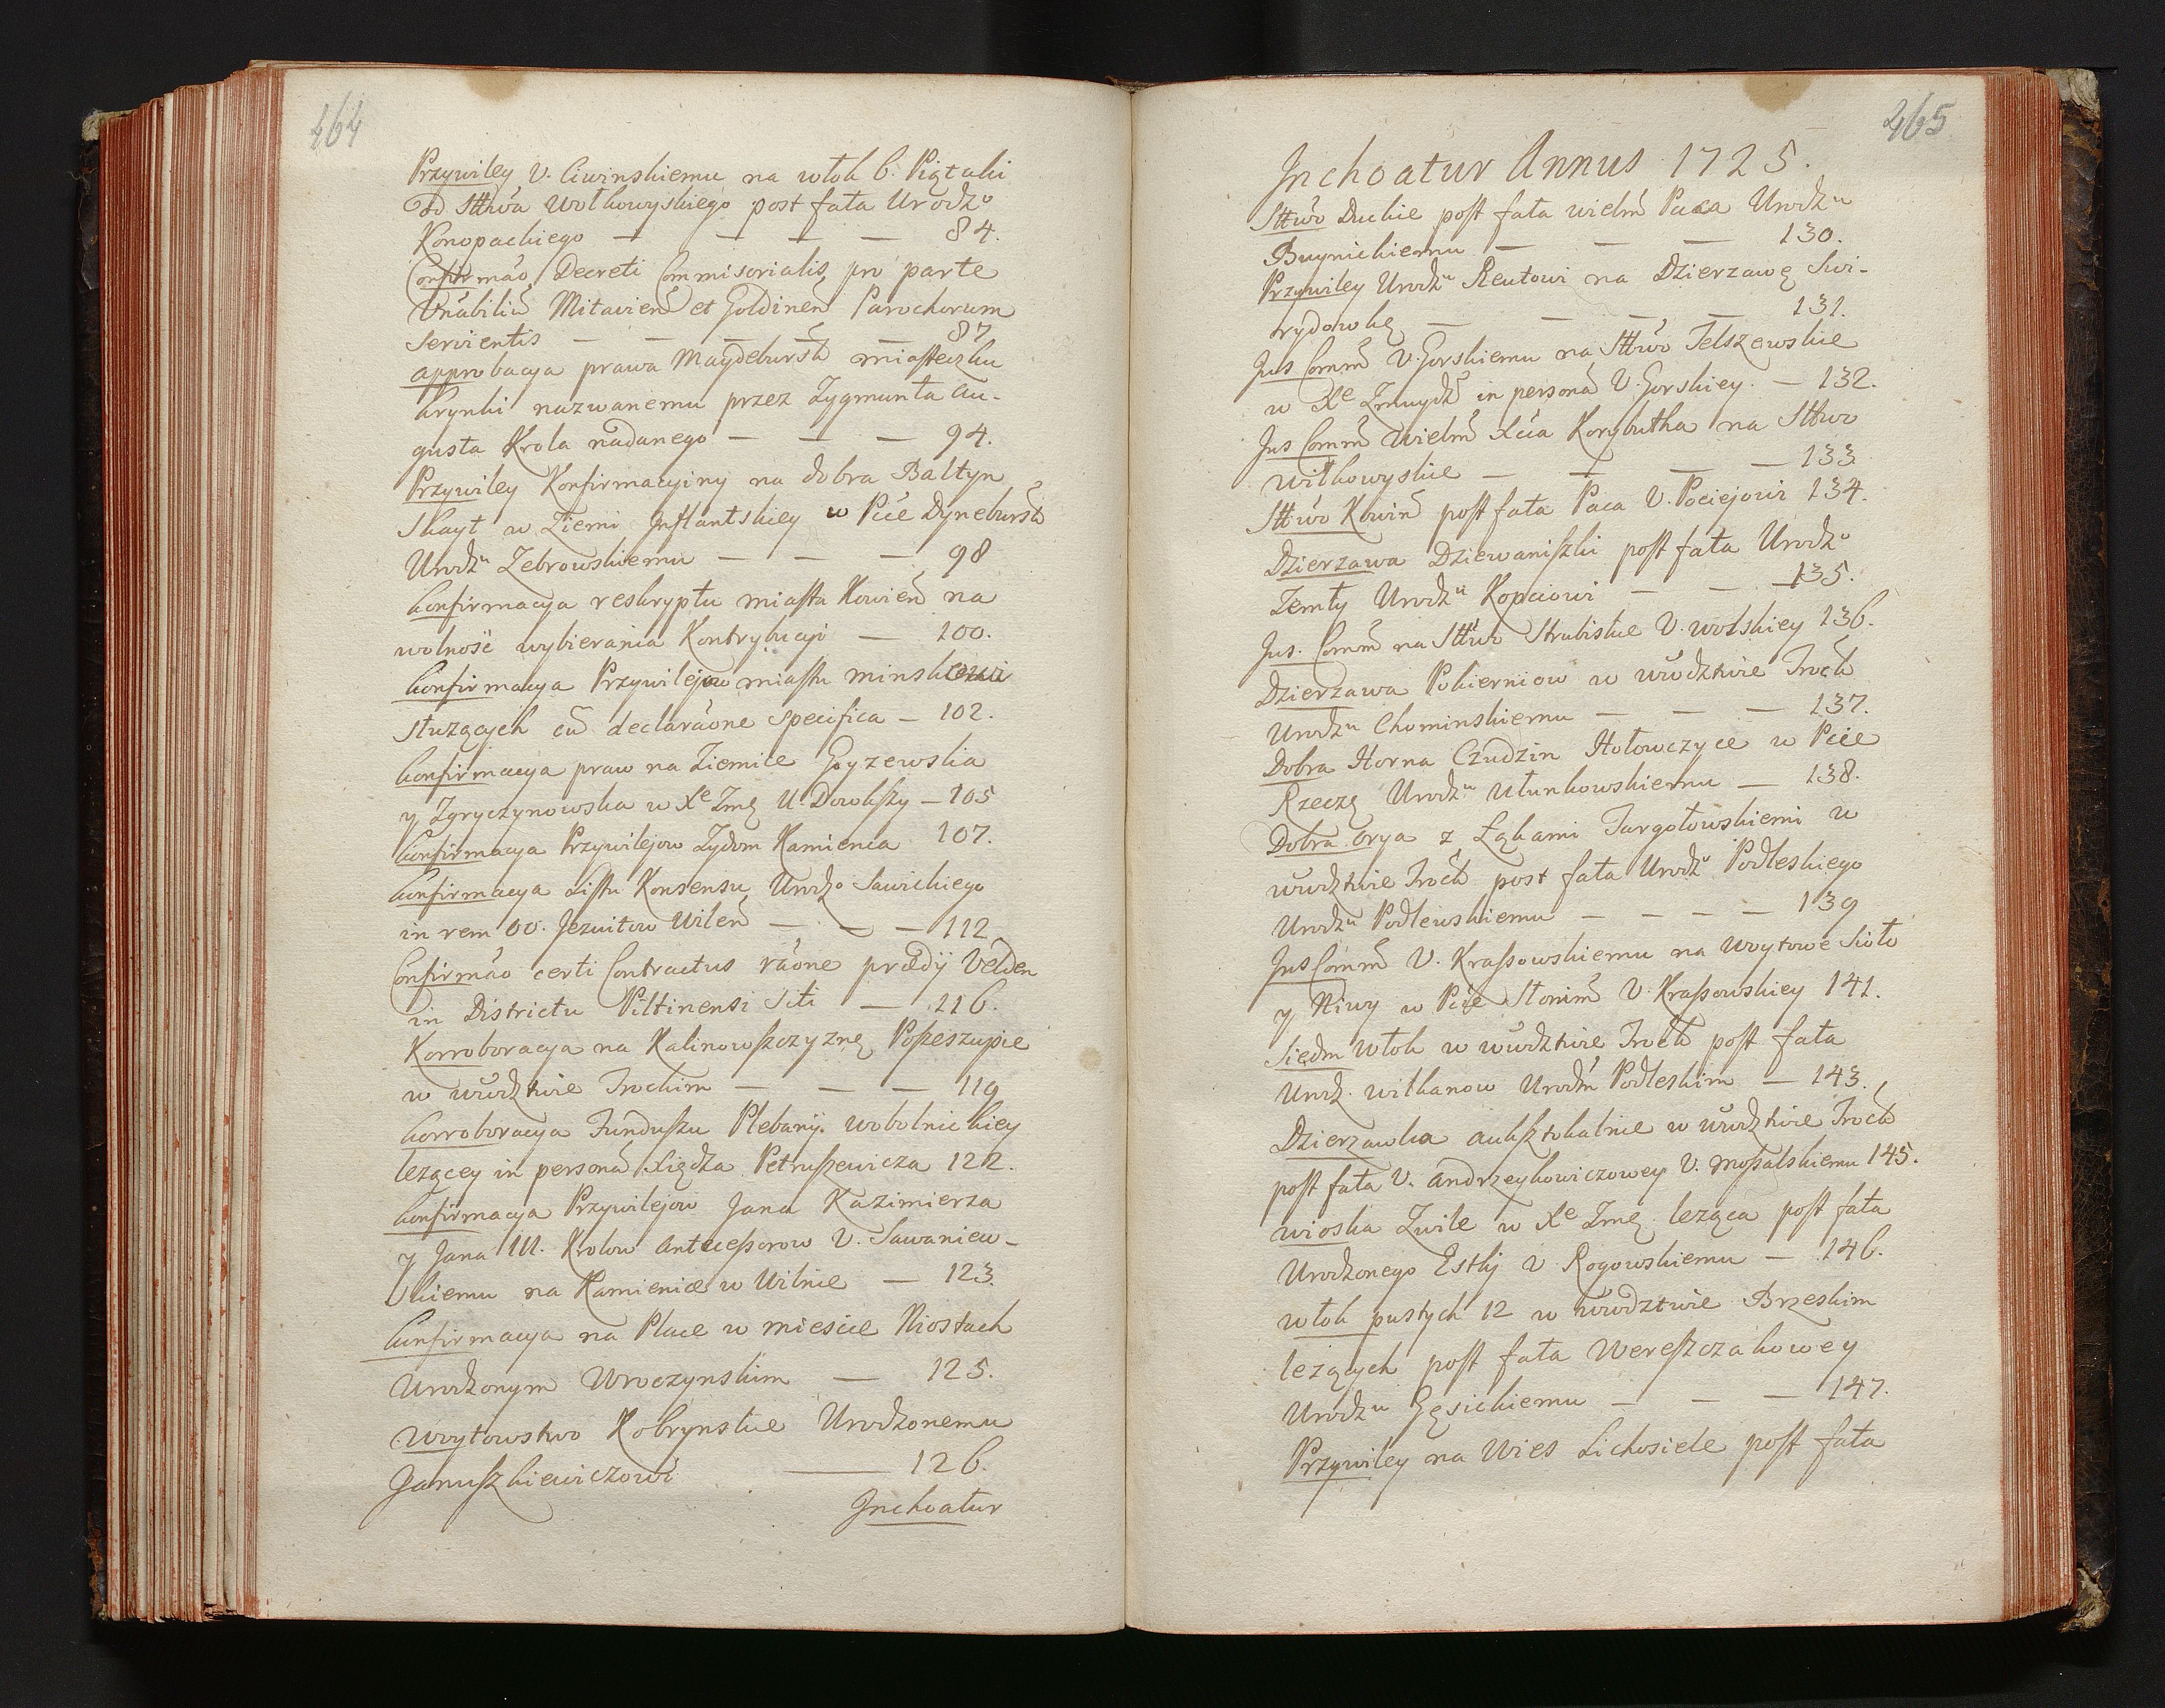 464
Przywiley U. Ciwinskiemu na włok 6. Piątaki
od Sttwa Wołkowyskiego post fata Urodzo
Konopackiego — — — — 84.
Confirmao Decreti Commisorialis, pro parte
Vnabiliu Mitavien et Goldinen Parochorum
Servientis — — — — — 87
Approbacya prawa Maydebursk miasteczku
Krynki nazwanemu przez Zygmunta Au-
gusta Krola nadanego — — — 94.
Przywiley Konfirmacyiny na dobra Baltyn
Skayt w Ziemi Inflantskiey w Pcie Dynebursk
Urodzu Zebrowskiemu — — — 98
Konfirmacya reskryptu miasta Kowien na
wolność wybierania Kontrybucyi — 100.
Konfirmacya Przywilejow miastu minskowi
służących cu declaraone specifica — 102.
Konfirmacya praw na Ziemice Goyzewska
y Zgryczynowska w Xe Zmę U. Dowkszy — 105
Konfirmacya Przywilejow Zydom Kamienca 107.
Konfirmacya Listu Konsensu, Urodzo Sawickiego
in rem OO. Jezuitow Wilen — — — 112
Confirmao certi Contractus raone prædij Velden
in Districtu Piltinensi Siti — 116.
Korroboracya na Kalinowszczyznę, Poszeszupie
w wwdztwie Trockim — — — 119
Korroboracya Funduszu Plebanij. wobolnickiey
lezącey in persona Xiędza Petruszewicza 122.
Konfirmacya Przywilejow Jana Kazimierza
y Jana III. Krolow Antecessorow U. Sawaniew-
skiemu na Kamienice w Wilnie — 123.
Konfirmacya na Place w miescie Niostach
Urodzonym Uroczynskim — 125.
Woytowstwo Kobrynskie Urodzonemu
Januszkiewiczowi — 126.
Inchoatur
465
Inchoatur Annus 1725.
Sttwo Duckie post fata wielm Paca Urodzu
Buynickiemu — — — 130.
Przywiley Urodzu Reutowi na Dzierzawę Swi-
rydowkę — — — — 131.
Jus Comm U. Gorskiemu na Sttwo Telszewskie
w Xe Zmuydz in persona U. Gorskiey. — 132.
Jus Comm Wielm Xcia Korybutha na Sttwo
wiłkowyskie — — — — 133
Sttwo Kowin post fata Paca U. Pociejowi 134.
Dzierzawa Dziewaniszki post fata Urodzo
Zemły Urodzu Kopciowi — — 135.
Jus. Comm na Sttwo Strubiskie U. wolskiey 136.
Dzierzawa Pokierniow w wwdztwie Trock
Urodzu Chominskiemu — — — 137.
Dobra Horna Czudzin Hołowczyce w Pcie
Rzeczę Urodzu Ułunkowskiemu — 138.
Dobra Orya z Łąkami Jargołowskiemi w
wwdztwie Trock post fata Urodzo Podleskiego
Urodzu Podlewskiemu — — — — 139
Jus Comm U. Krassowskiemu na Woytowe Sioło
y Niwy w Pcie Słonim U. Krassowskiey 141.
Siędm Włok w wwdztwie Trock post fata
Urodz. witkanow Urodzm Podleskim — 143.
Dzierzawka auksztokalnie w wwdztwie Trock
post fata U. Andrzeykowiczowey U. Mosalskiemu 145.
wioska Zwile w Xe Zmę. leząca post fata
Urodzonego Estky U Rogowskiemu — 146.
Włok pustych 12 w wwdztwie Brzeskim
lezących post fata Wereszczakowey
Urodzu Gęsickiemu — — — 147.
Przywiley na Wies Lichosiele post fata